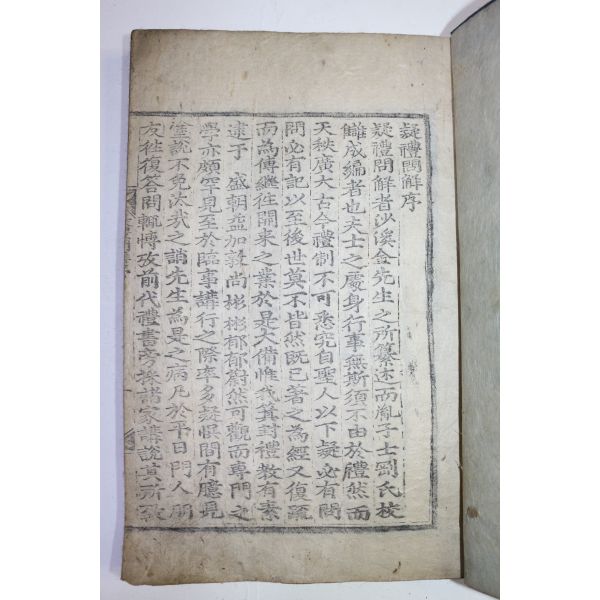 疑禮問解序
疑禮問解者沙溪金先生之所纂述而胤子士剛氏校
讎成編者也夫士之處身行事無斯須不由於禮然而
天秩廣大古今禮制不可悉究自聖人以下疑必有問
問必有記以至後世莫不皆然旣已著之為經又復疏
而為傳繼往開來之業於是大備惟我箕封禮敎有素
逮于 盛朝益加敦尙彬彬郁郁蔚然可觀而專門之
學亦頗罕見至於臨事講行之際率多疑惧間有臆見
佥說不免汰哉之誚先生為是之病乃於平日門人朋
友往復答問輒慱攷前代禮書旁採諸家講說其所致